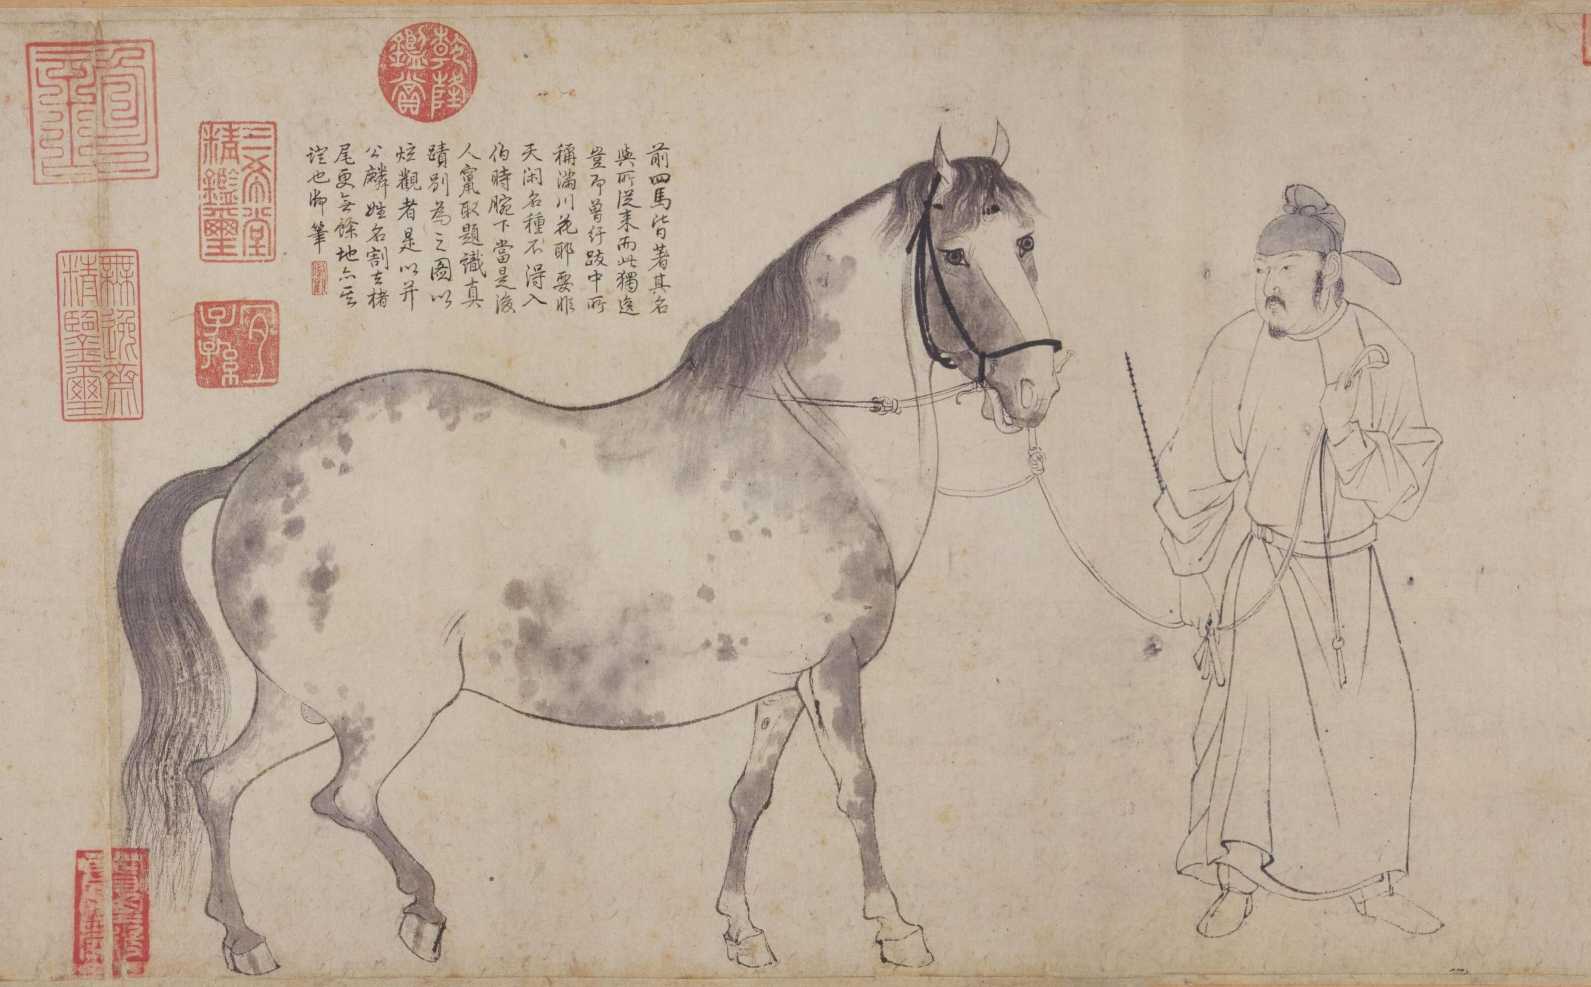 前四馬皆著其名
與所從來而此獨逸
豈即曾紆跋中所
稱滿川花耶要非
天閑名種不得入
伯時腕下當是後
人竄取題識真
蹟別為之圖以
炫觀者是以并
公麟姓名割去楮
尾更無餘地亦其
證也御筆
乾隆鑑賞
三希堂精鑑璽
宜子孫
無逸齋精鑒璽